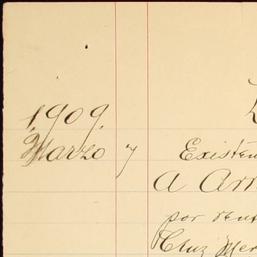 1909.
Marzo 7 Existen
A Arr
por
Cruz Mer